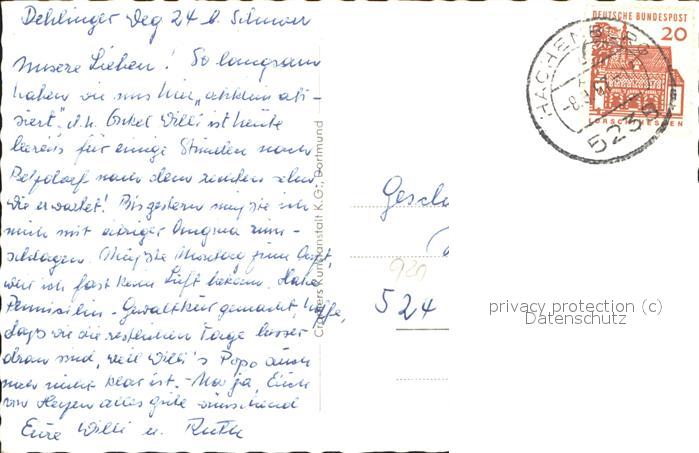 Dehlinger Weg 24 b. Schmon
Unsere Lieben! So langsam
haben wir uns hier "akklimati-
siert". d.h. Onkel Willi ist heute
bereits für einige Stunden nach
Betzdorf nach dem rechten sehn
wie erwartet! Bis gestern mußte ich
mich mit eitriger Angina rum-
schlagen. Mußte Montag zum Arzt,
weil ich fast keine Luft bekam. Habe
Pennizilin - Gewaltkur gemacht, hoffe,
daß wir die restlichen Tage besser
dran sind, weil Willi's Popo auch
noch nicht klar ist. - Na ja, Euch
von Herzen alles gute wünschend
Eure Willi u. Ruth
Cramers Kunstanstalt K.G., Dortmund
DEUTSCHE BUNDESPOST
20
LORSCH/HESSEN
HACHENBURG
5238
920
524
privacy protection (c)
Datenschutz